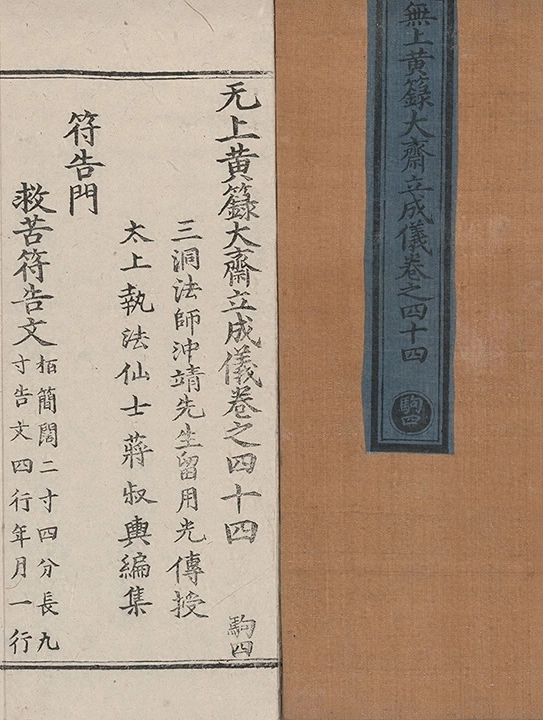 無上黄籙大齋立成儀卷之四十四
駒四
无上黄籙大齋立成儀卷之四十四 駒四
三洞法師沖靖先生留用光傳授
太上執法仙士蔣叔輿編集
符告門
救苦符告文 栢簡闊二寸四分長九
寸告文四行年月一行